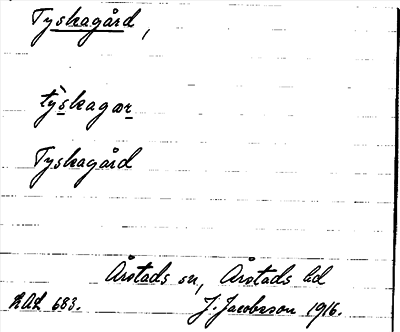 Tyskagård,
tỳskagær
Tyskagård
Årstads sn, Årstads hd
LAL 683. J. Jacobsson 1916.